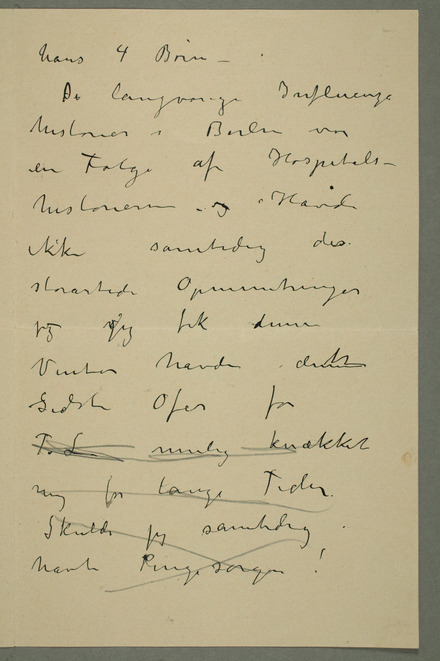 hans 4 Børn –
De langvarige Influenza
historier i Berlin var
en Følge af Hospitals-
historierne og Havde
ikke samtidig de
storartede Opmuntringer
jeg fik denne
Vinter havde dette
sidste Ofer for
mulig knækket
mig for lange Tider.
Skulde jeg samtidig
havt Pengesorger!